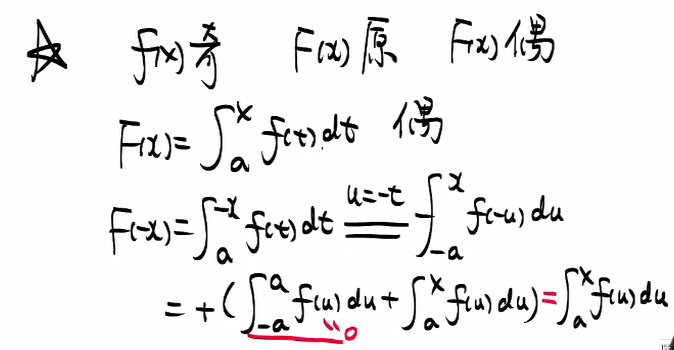 ☆ f(x)奇 F(x)原 F(x)偶
F(x)=∫_a^x f(t)dt 偶
F(-x)=∫_a^{-x} f(t)dt \xlongequal{u=-t} -∫_{-a}^x f(-u)du
=+(∫_{-a}^a f(u)du+∫_a^x f(u)du)=∫_a^x f(u)du
"0